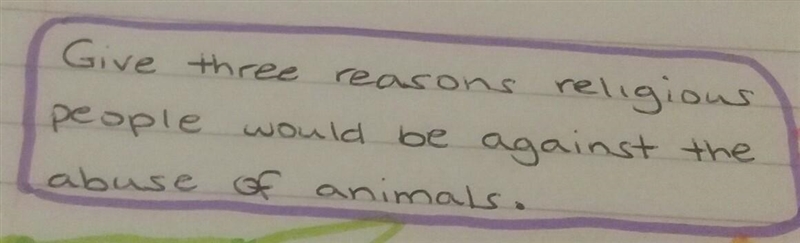 Give three reasons religious
people would be against the
abuse of animals.